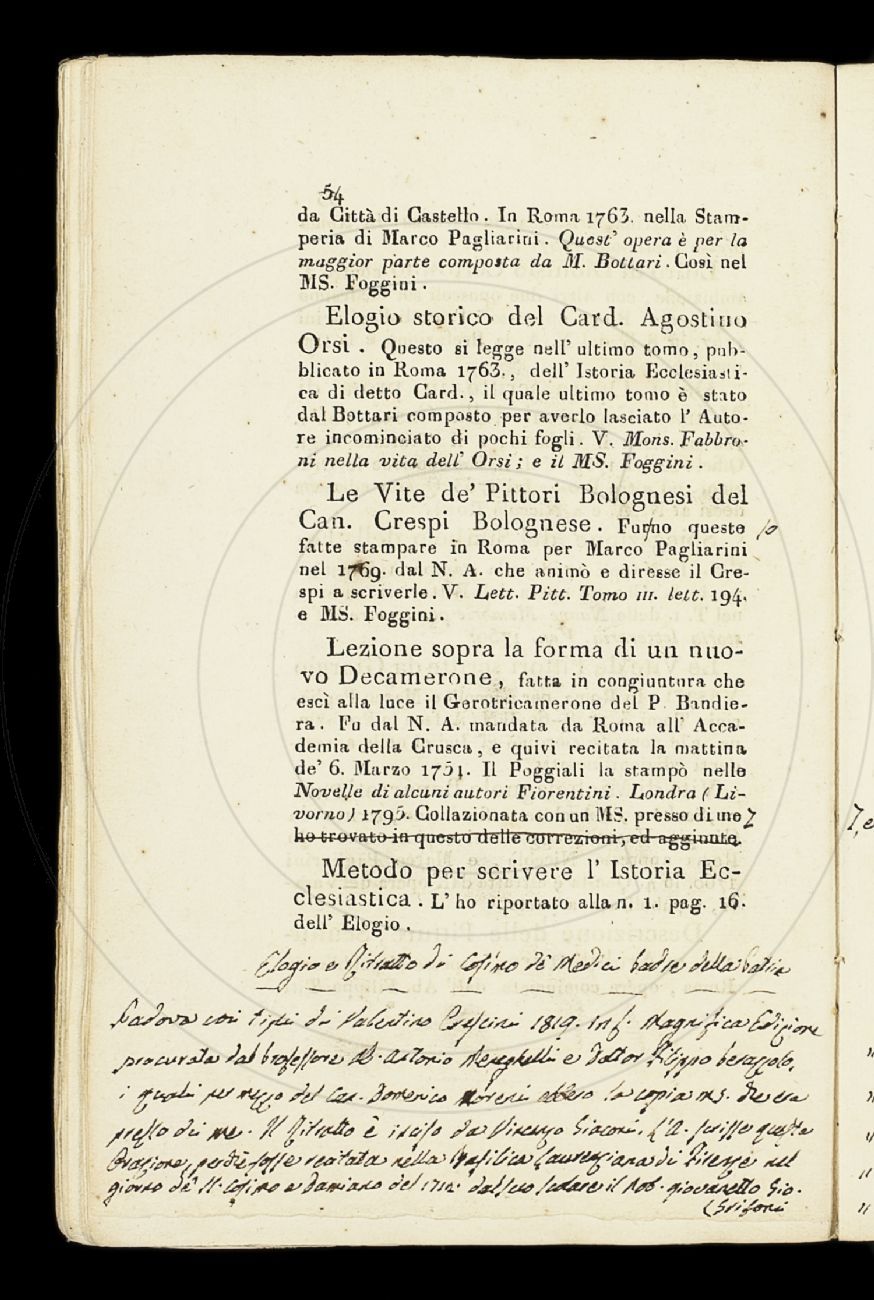 54
da Città di Castello. In Roma 1763. nella Stam-
peria di Marco Pagliarini. Quest' opera è per la
maggior parte composta da M. Bottari. Così nel
MS. Foggini.
Elogio storico del Card. Agostino
Orsi. Questo si legge nell' ultimo tomo, pub-
blicato in Roma 1763., dell' Istoria Ecclesiasti-
ca di detto Card., il quale ultimo tomo è stato
dal Bottari composto per averlo lasciato l' Auto-
re incominciato di pochi fogli. V. Mons. Fabbro-
ni nella vita dell' Orsi; e il MS. Foggini.
Le Vite de' Pittori Bolognesi del
Can. Crespi Bolognese. Furno queste /o
fatte stampare in Roma per Marco Pagliarini
nel 1769. dal N. A. che animò e diresse il Cre-
spi a scriverle. V. Lett. Pitt. Tomo III. lett. 194.
e MS. Foggini.
Lezione sopra la forma di un nuo-
vo Decamerone, fatta in congiuntura che
escì alla luce il Gerotricamerone del P. Bandie-
ra. Fu dal N. A. mandata da Roma all' Acca-
demia della Crusca, e quivi recitata la mattina
de' 6. Marzo 1751. Il Poggiali la stampò nelle
Novelle di alcuni autori Fiorentini. Londra (Li-
vorno) 1795. Collazionata con un MS. presso di me
ho trovato in questo delle correzioni, ed aggiunte.
Metodo per scrivere l' Istoria Ec-
clesiastica. L' ho riportato alla n. 1. pag. 16.
dell' Elogio.
Elogio e Ritratto di Cosimo de' Medici Padre della Patria
Padova coi tipi di Valentino Crescini 1819. in f. Magnifica Edizione
procurata dal Professore Ab. Antonio Meneghelli e Dottor Filippo
i quali per mezzo del Can. Domenico Moreni ebbero la copia ms. che era
presso di me. Il Ritratto è inciso da Vincenzo Giaconi. L'A. scrisse questa
Orazione, perchè fosse recitata nella Basilica Laurenziana di Firenze nel
giorno de' SS. Cosimo e Damiano del 1712. dal suo scolare il Nob. giovanetto Gio.